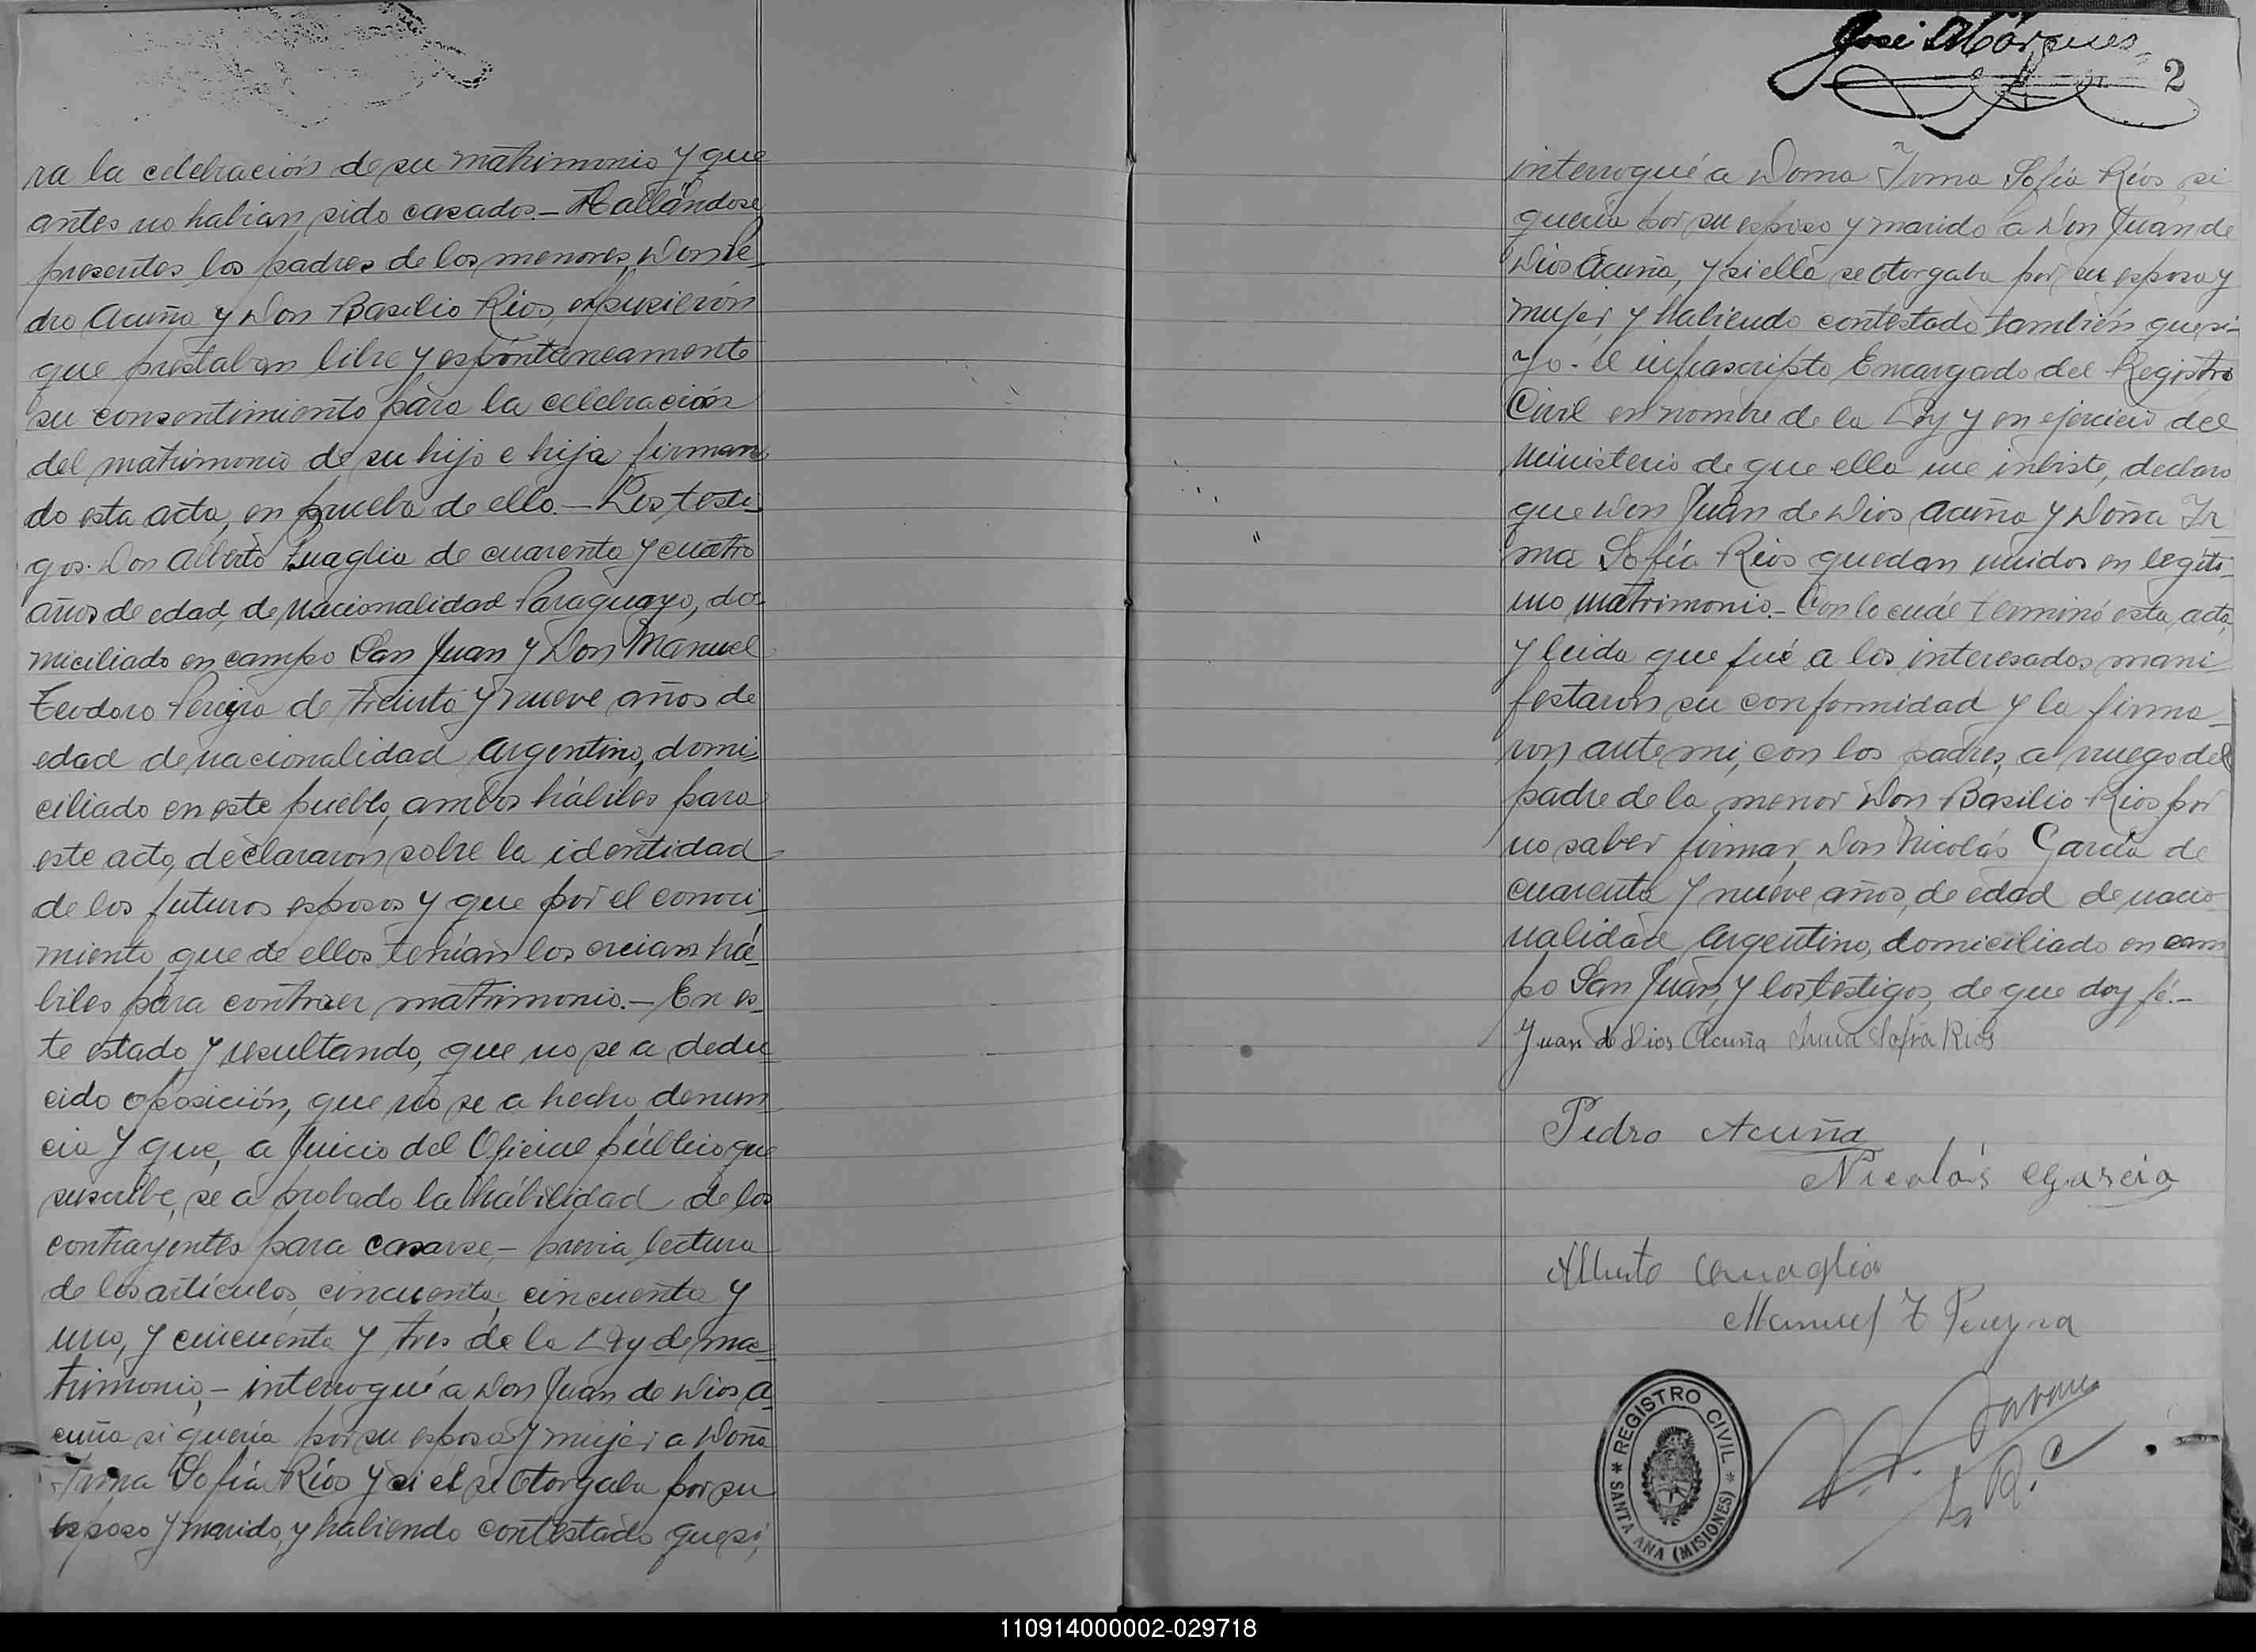 ra la celebración de su matrimonio y que
antes no habian sido casados.- Hallándose
presentes los padres de los menores, Don Pe-
dro Acuña y Don Basilio Rios, expusierón
que prestaban libre y espóntaneamente
su consentimiento para la celebración
del matrimonio de su hijo e hija firman
do esta acta, en prueba de ello.- Los testi-
gos. Don Alberto Quaglia de cuarenta y cuatro
años de edad, de nacionalidad Paraguayo, do-
miciliado en campo San Juan y Don Manuel
Teodoro Pereyra de treinta y nueve años de
edad de nacionalidad Argentino, domi-
ciliado en este pueblo, ambos hábiles para
este acto, declararon sobre la identidad
de los futuros esposos y que por el conoci-
miento que de ellos tenían los creian há-
biles para contraer matrimonio.- En es-
te estado y resultando, que no se a dedu
cido oposición, que no se a hecho denun
cia y que, a juicio del Oficial público que
suscribe, se a probado la habilidad de los
contrayentes para casarse,- previa lectura
de los artículos, cincuenta, cincuenta y
uno, y cincuenta y tres de la Ley de ma-
trimonio,- interrogué a Don Juan de Dios A-
cuña si quería por su esposa y mujer a Doña
Irma Sofía Ríos y si el se otorgaba por su
esposo y marido, y habiendo contestado que si,
José Márques
2
interrogué a Doma Irma Sofía Ríos, si
quería por su esposo y marido a Don Juan de
Dios Acuña, y si ella se otorgaba por su esposa y
mujer, y habiendo contestado también que si-
Yo. el infrascripto Encargado del Registro
Civil en nombre de la Ley y en ejercicio del
Ministerio de que ella me inbiste, declaro
que Don Juan de Dios Acuña y Doña Ir
ma Sofía Rios quedan unidos en legíti-
mo matrimonio.- Con lo cuál terminó esta acta,
y leida que fué a los interesados mani
festaron su conformidad y la firma-
ron ante mi, con los padres, a ruego del
padre de la menor Don Basilio Rios por
no saber firmar, Don Nicolás García de
cuarenta y nueve años, de edad de nacio
nalidad Argentino, domiciliado en cam
po San Juan, y los testigos, de que doy fé.-
Juan de Dios Acuña Irma Sofia Rios
Pedro Acuña
Nicolás Garcia
Alberto Quaglia
Manuel T Pereyra
REGISTRO CIVIL
SANTA ANA (MISIONES)
110914000002-029718